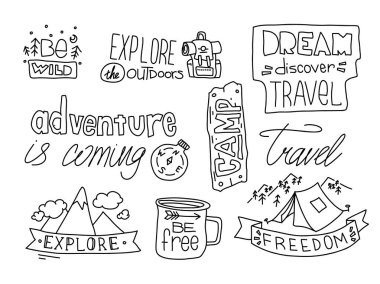 BE
WILD
EXPLORE
the OUTDOORS
DREAM
discover
TRAVEL
adventure
is coming
N
E
S
W
CAMP
travel
EXPLORE
BE
free
FREEDOM